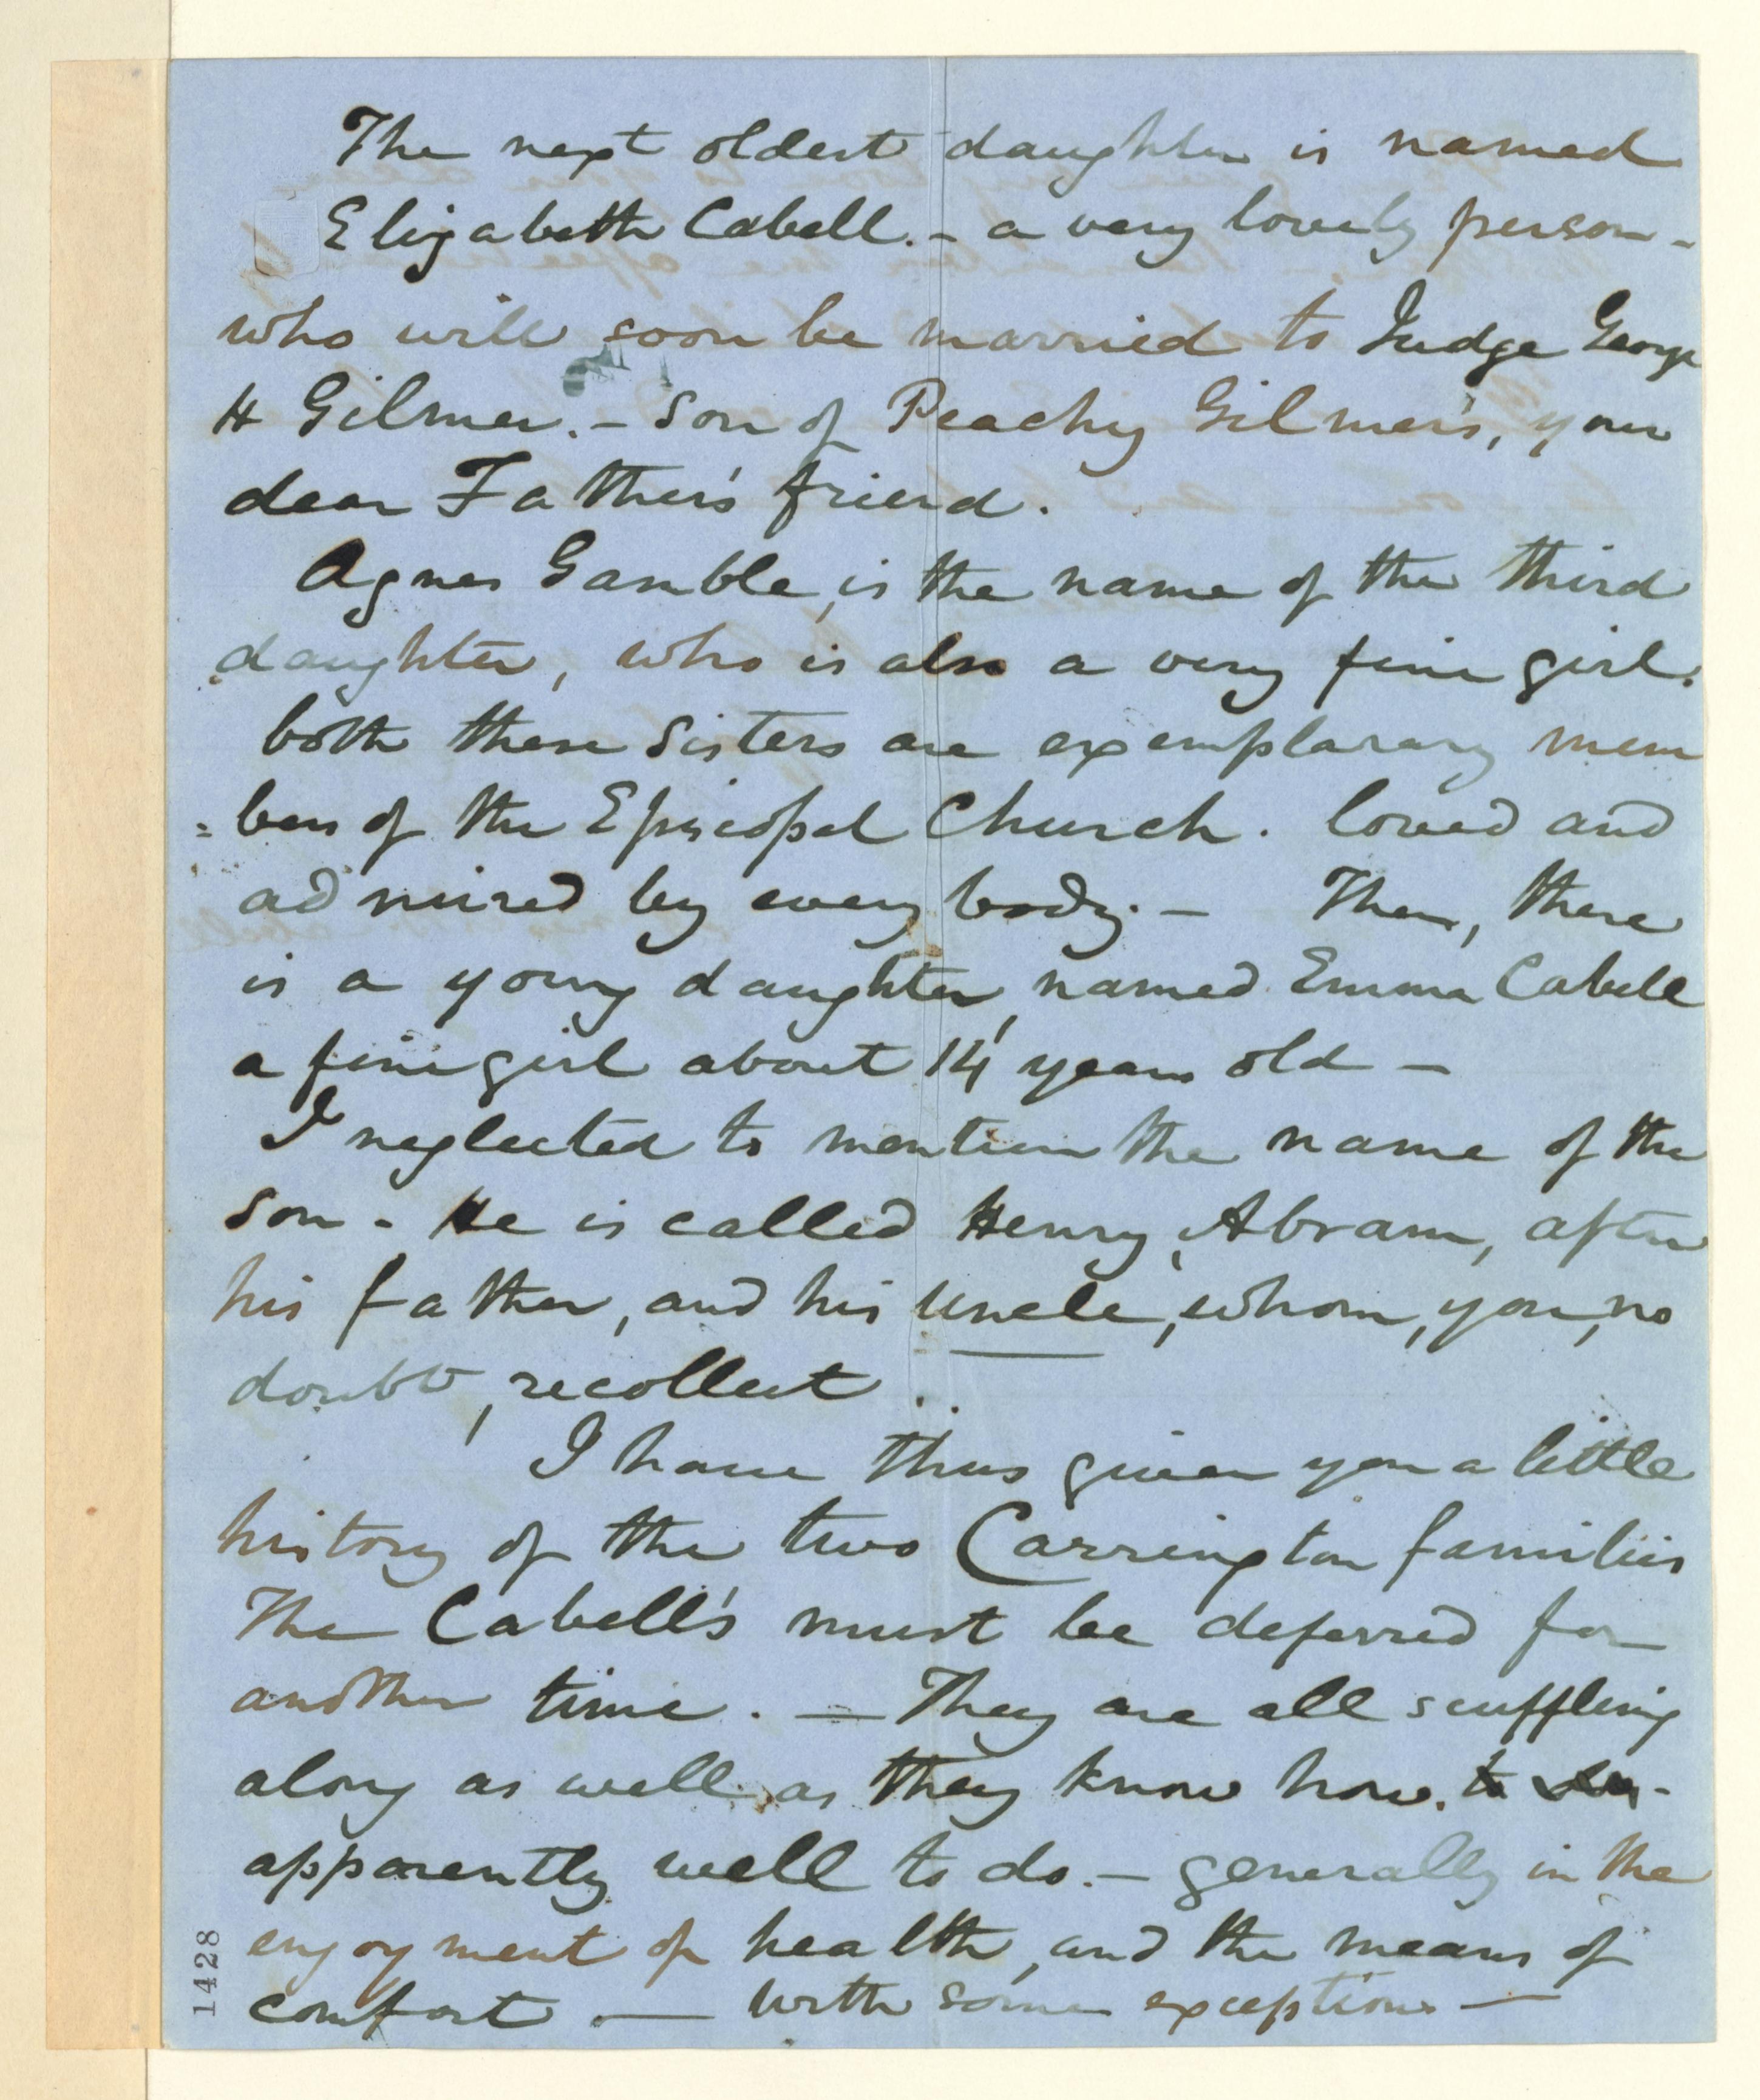 The next oldest daughter is named
Elizabeth Cabell. - a very lovely person -
who will soon be married to Judge George
H Gilmer. - Son of Peachy Gilmer's, your
dear Father's friend.
Agnes Gamble, is the name of the third
daughter, who is also a very fine girl.
both these Sisters are exemplarary mem
=bers of the Episcopal Church. loved and
admired by every body. - Then, there
is a young daughter, named Emma Cabell
a fine girl about 14 years old -
I neglected to mention the name of the
son - He is called Henry, Abram, after
his father, and his Uncle, whom, you, no
doubt, recollect.
I have thus given you a little
history of the two Carrington families
The Cabell's must be deferred for
another time. — They are all scuffling
along as well as they know how. to
apparently well to do. - generally in the
enjoyment of health, and the means of
comfort — with some exceptions —
1428